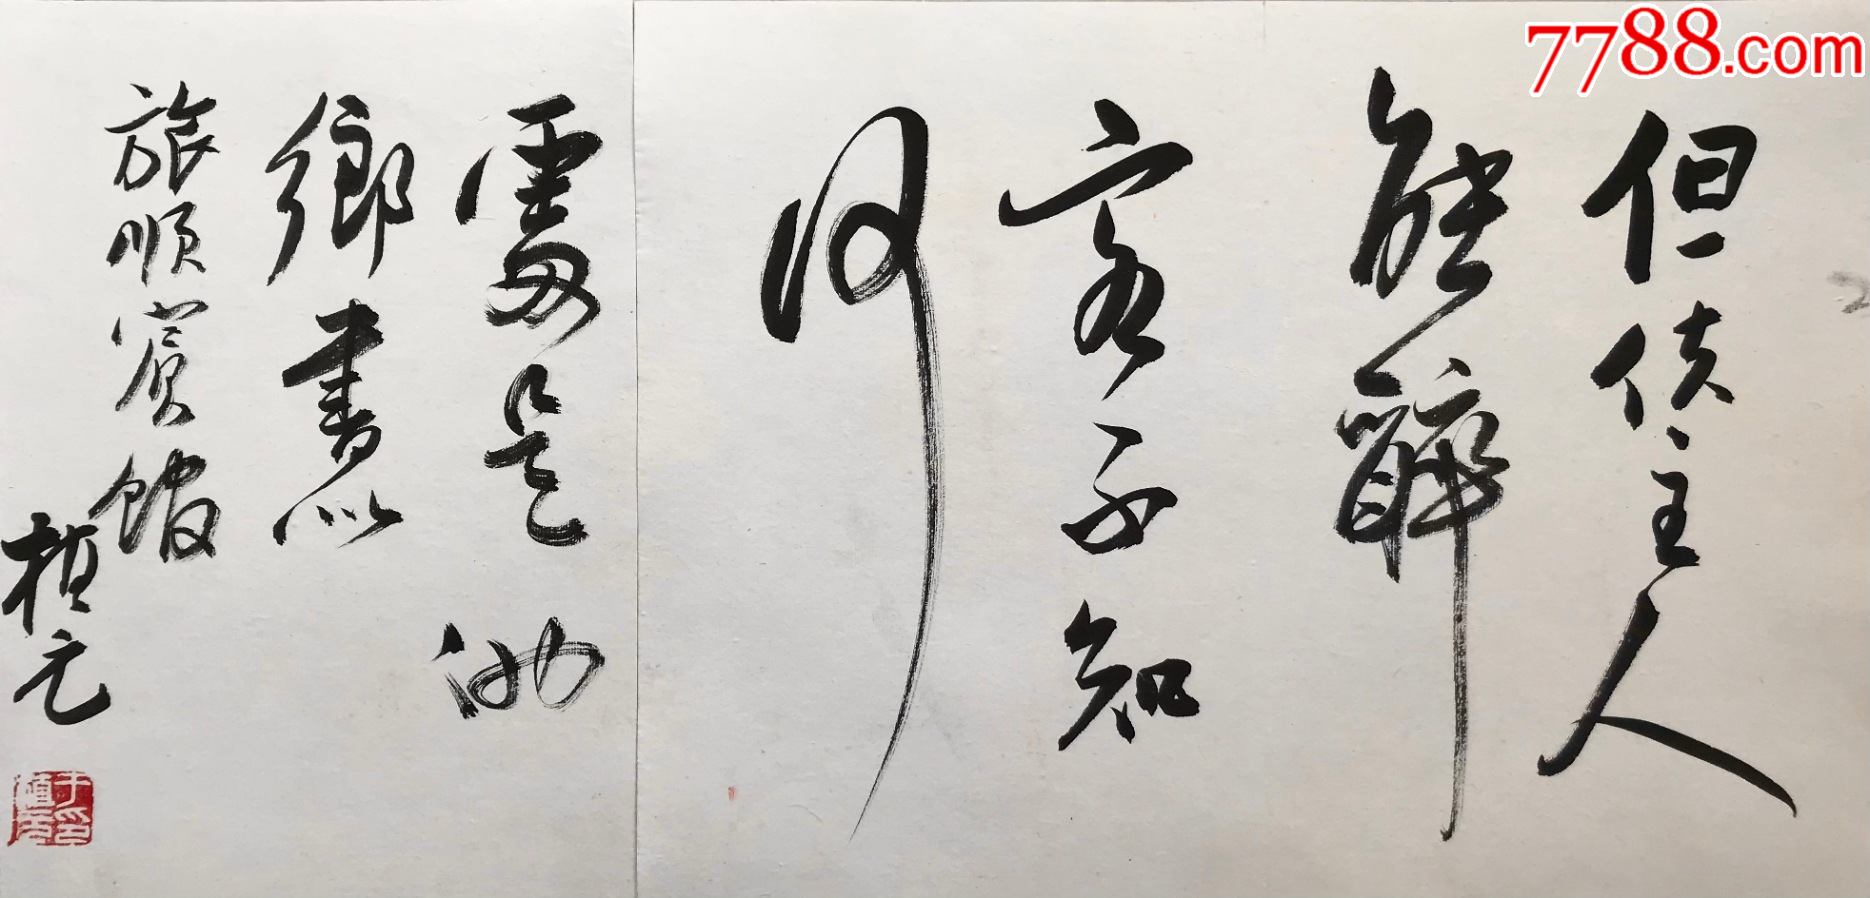 7788.com
但使主人
能醉
客不知
何
處是他
鄉書以
旅順賓館
植元
于印
植元